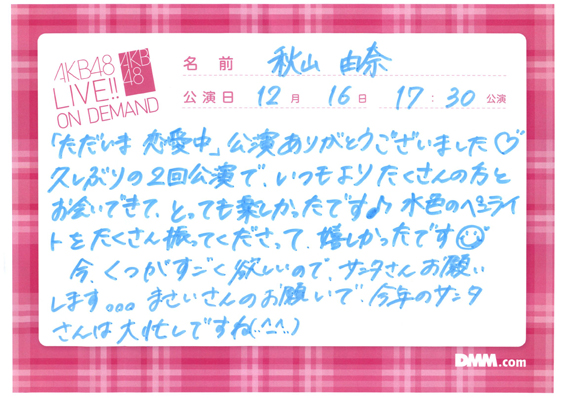 AKB48
LIVE!!
ON DEMAND
AKB
48
名前 秋山 由奈
公演日 12月 16日 17:30公演
「ただいま 恋愛中」公演ありがとうございました♡
久しぶりの2回公演で、いつもよりたくさんの方と
お会いできて、とっても楽しかったです♪ 水色のペンライ
トをたくさん振ってくださって、嬉しかったです☺
今、くつがすごく欲しいので、サンタさんお願い
します。。。まさいさんのお願いで、今年のサンタ
さんは大忙しですね(.^-^..)
DMM.com